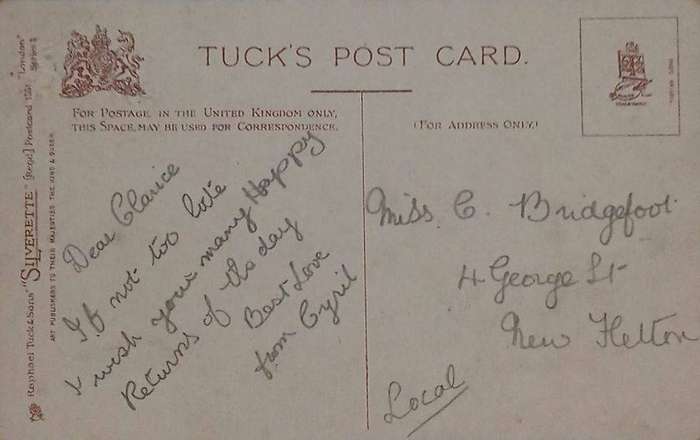 TUCK'S POST CARD.
FOR POSTAGE IN THE UNITED KINGDOM ONLY,
THIS SPACE MAY BE USED FOR CORRESPONDENCE.
(FOR ADDRESS ONLY.)
Raphael Tuck & Sons' "SILVERETTE" [Regd.] Postcard "London" Series
ART PUBLISHERS TO THEIR MAJESTIES THE KING & QUEEN.
Dear Clarice
If not too late
I wish you many Happy
Returns of the day
Best Love
from Cyril
Miss C. Bridgefoot
4 George St
New Fletton
Local